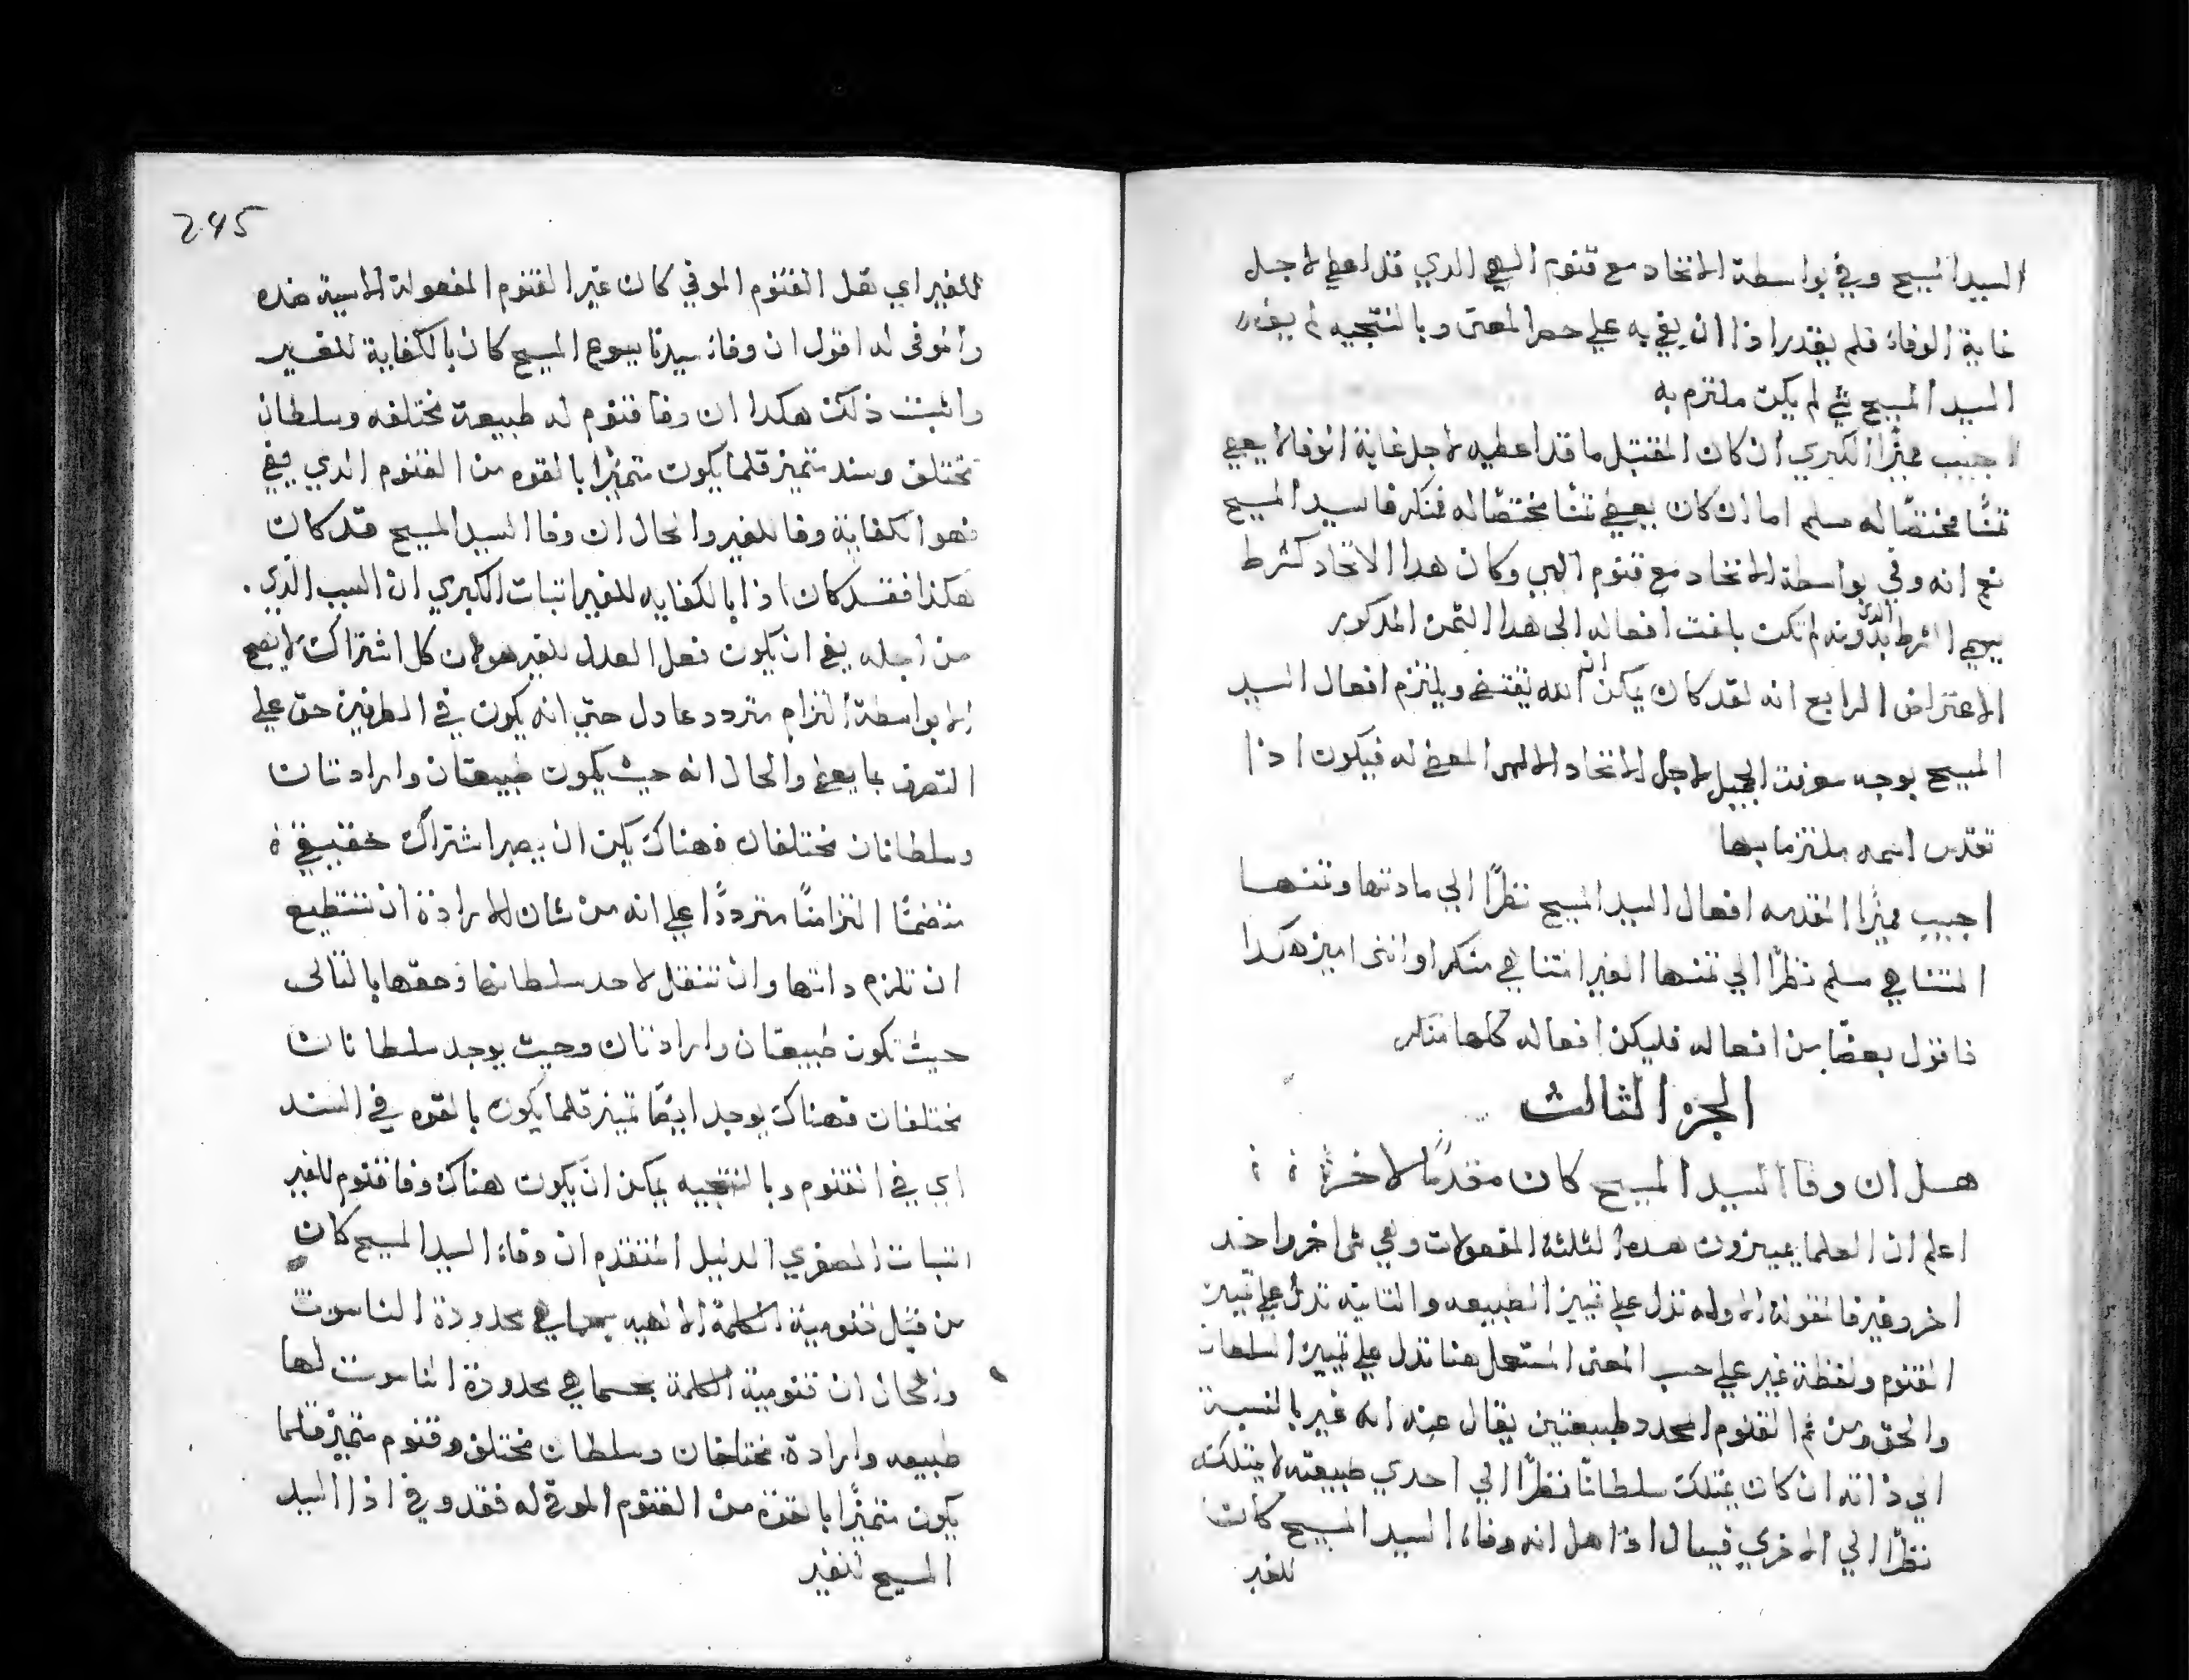 السيد المسيح وفي بواسطة الاتحاد مع قنوم الهي الدي قد اعطي لاجل
غاية الوفاء فلم يقدر اذا ان يفي به علي حصر المعنى وبالنتجيه لم يقدر
السيد المسيح شي لم يكن ملتزم به
اجيب مميزًا الكبري ان كان المقتبل ما قد اعطيه لاجل غاية الوفا لا يعطي
ثمنًا مختصًا له مسلم اما ان كان يعطي ثمنًا مختصًا له فنكر فالسيد المسيح
نعم انه وفي بواسطة الاتحاد مع قنوم الهي وكان هدا الاتحاد كشرط
الشرط الذي بدونه لم تكن بلغت افعاله الى هدا الثمن المدكور
الاعتراض الرابع انه لقد كان يمكن ان الله يقتضي ويلتزم افعال السيد
المسيح بوجه معرفت الجميل لاجل الاتحاد الالهي المعطي له فيكون اذا
تقدس اسمه ملتزما بها
اجيب مميزًا المقدمه افعال السيد المسيح نظرًا الي مادتها وثمنها
المتناهي مسلم نظرًا الي ثمنها الغير المتناهي منكر او انني اميز هكدا
فاقول بعضًا من افعاله فليكن افعاله كلها منكر
الجزء الثالث
هل ان وفا السيد المسيح كان مقدمًا لاخر
اعلم ان العلما يميزون هده الثلثة المقولات وهي شي اخر واحد
اخر وغير فالمقولة الاوله تدل علي تمييز الطبيعه والثانيه تدل علي تمييز
القنوم ولفظة غير علي حسب المعنى المستعمل هنا تدل علي تمييز السلطان
والحق ومن ثم القنوم المحدد طبيعتين يقال عنه انه غير بالنسبة
الي ذاته ان كان يمتلك سلطانًا نظرًا الي احدي طبيعته لا يمتلكه
نظرًا الي الاخري فيسال اذا هل انه وفاء السيد المسيح كان
للغير
245
للغير اي هل القنوم الموفي كان غير القنوم المفعولة الاسية هده
والموفى له اقول ان وفاء سيدنا يسوع المسيح كان بالكفاية للغير
واثبت ذلك هكدا ان وفا قنوم له طبيعة مختلفه وسلطان
مختلف وسند متميز قلما يكون متميزًا بالقوه من القنوم الدي يفي
فهو الكفاية وفا للغير والحال ان وفا السيد المسيح قد كان
هكذا فقد كان اذا بالكفايه للغير اثبات الكبري ان السبب الذي
من اجله يفي ان يكون فعل العدل للغير هو لان كل اشتراك لا يصح
الا بواسطة التزام متردد عادل حتي انه يكون في الطرفين حق علي
التصرف بما يعطي والحال انه حيث يكون طبيعتان وارادتان
وسلطانان مختلفان فهناك يمكن ان يصير اشتراك حقيقي
متضمنًا التزامنًا مترددًا علي انه من شان الارادة ان تستطيع
ان تلزم داتها وان تنقل لاحد سلطانها وحقها بالتالى
حيث تكون طبيعتان وارادتان وحيث يوجد سلطانان
مختلفان فهناك يوجد ايضًا تميز قلما يكون بالقوه في السند
اي في القنوم وبالنتجيه يمكن ان يكون هناك وفا قنوم للغير
اثبات الصغري الدليل المتقدم ان وفاء السيد المسيح كان
من قبل قنومية الكلمة الالهيه بحسما هي محدودة الناسوت
والحال ان قنومية الكلمة بحسما هي محدودة الناسوت لها
طبيعه وارادة مختلفان وسلطان مختلف وقنوم متميز قلما
يكون متميزًا بالقوة من القنوم الموفي له فقد وفي اذا السيد
المسيح للغير